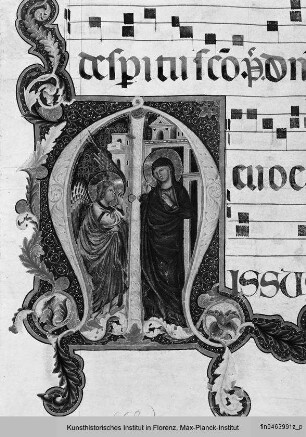 de spiritu sc̄o. p̄. dn̄
cuoc
issus
Kunsthistorisches Institut in Florenz, Max-Planck-Institut
fln0463991z_p